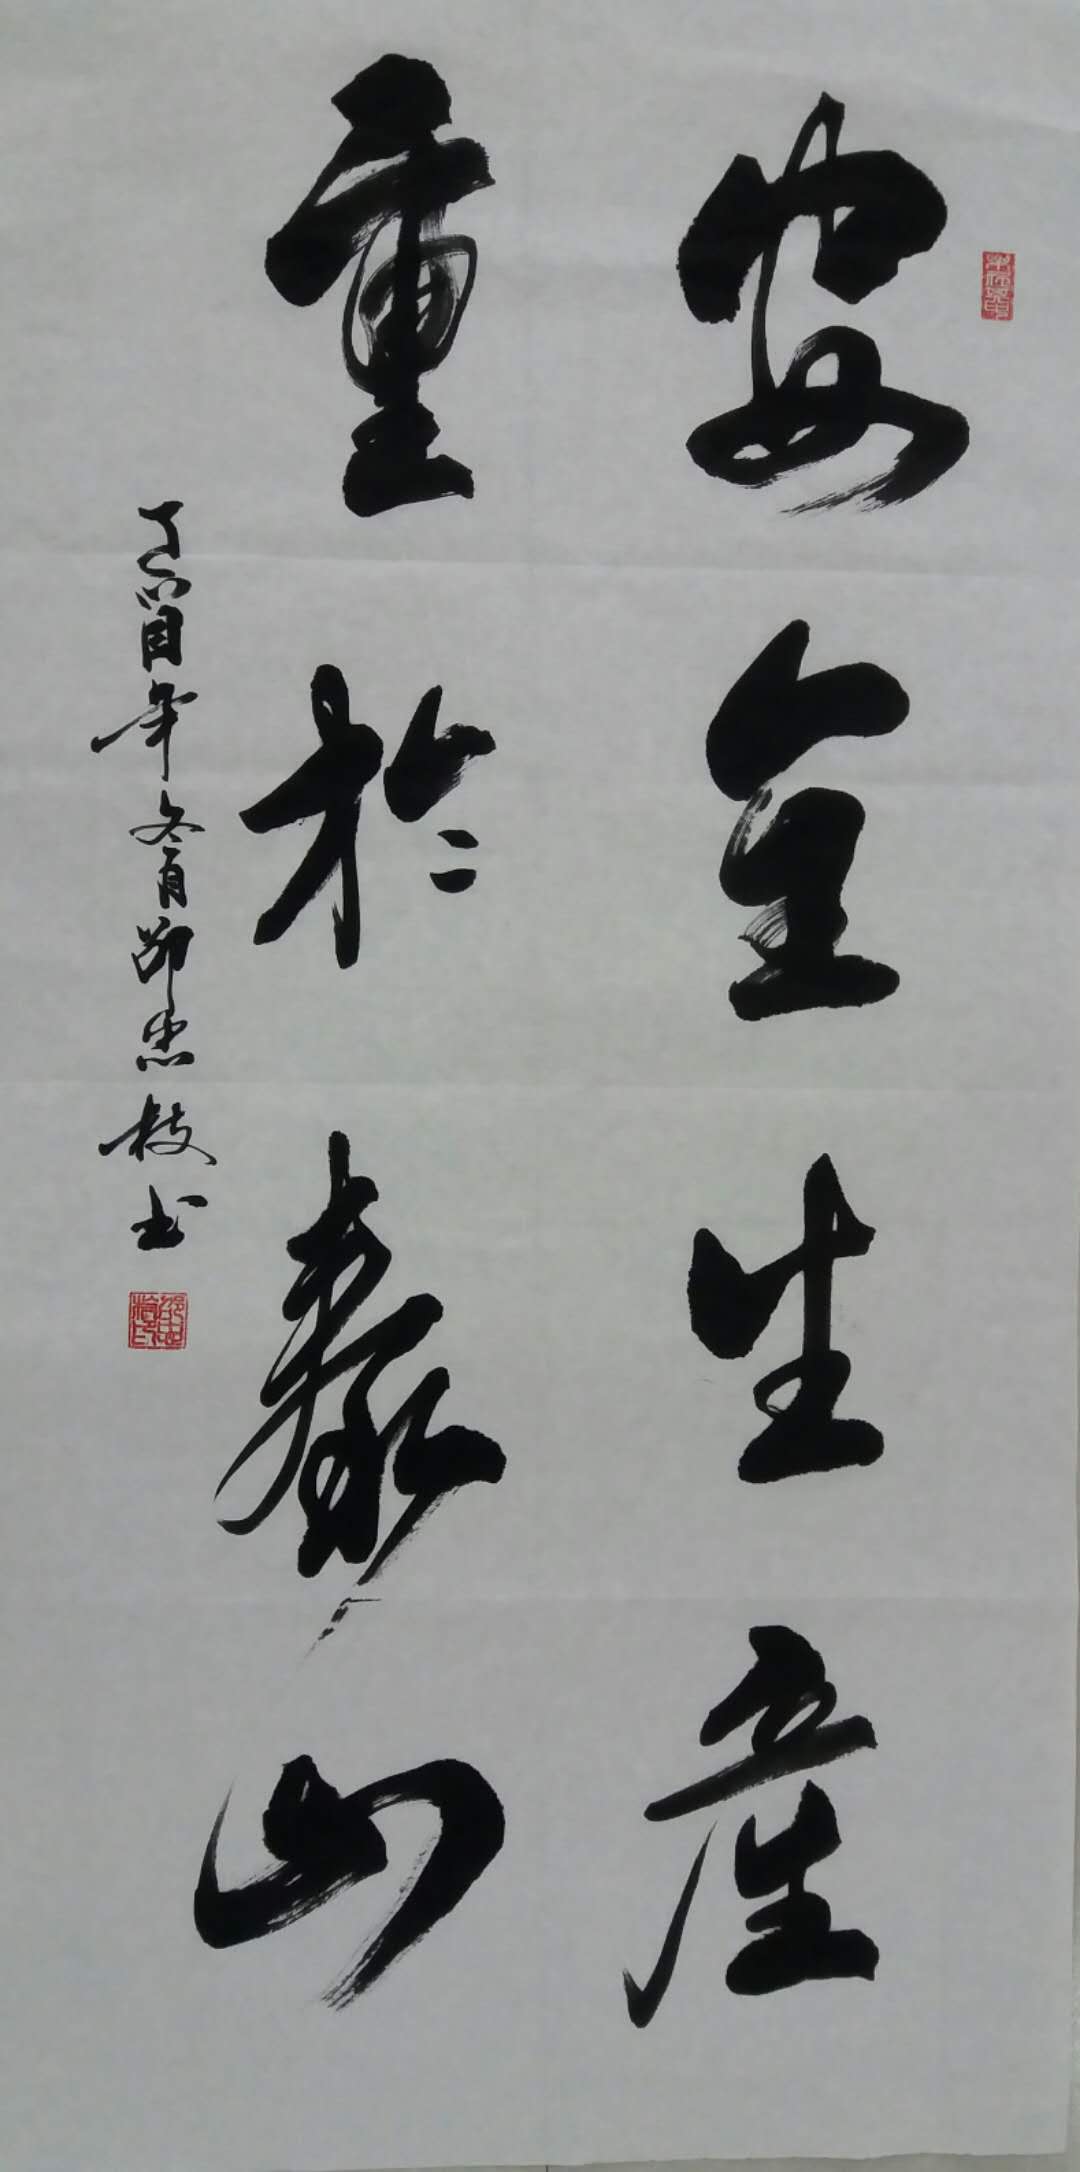 安全生产
重於泰山
丁酉年冬月邵忠枝书